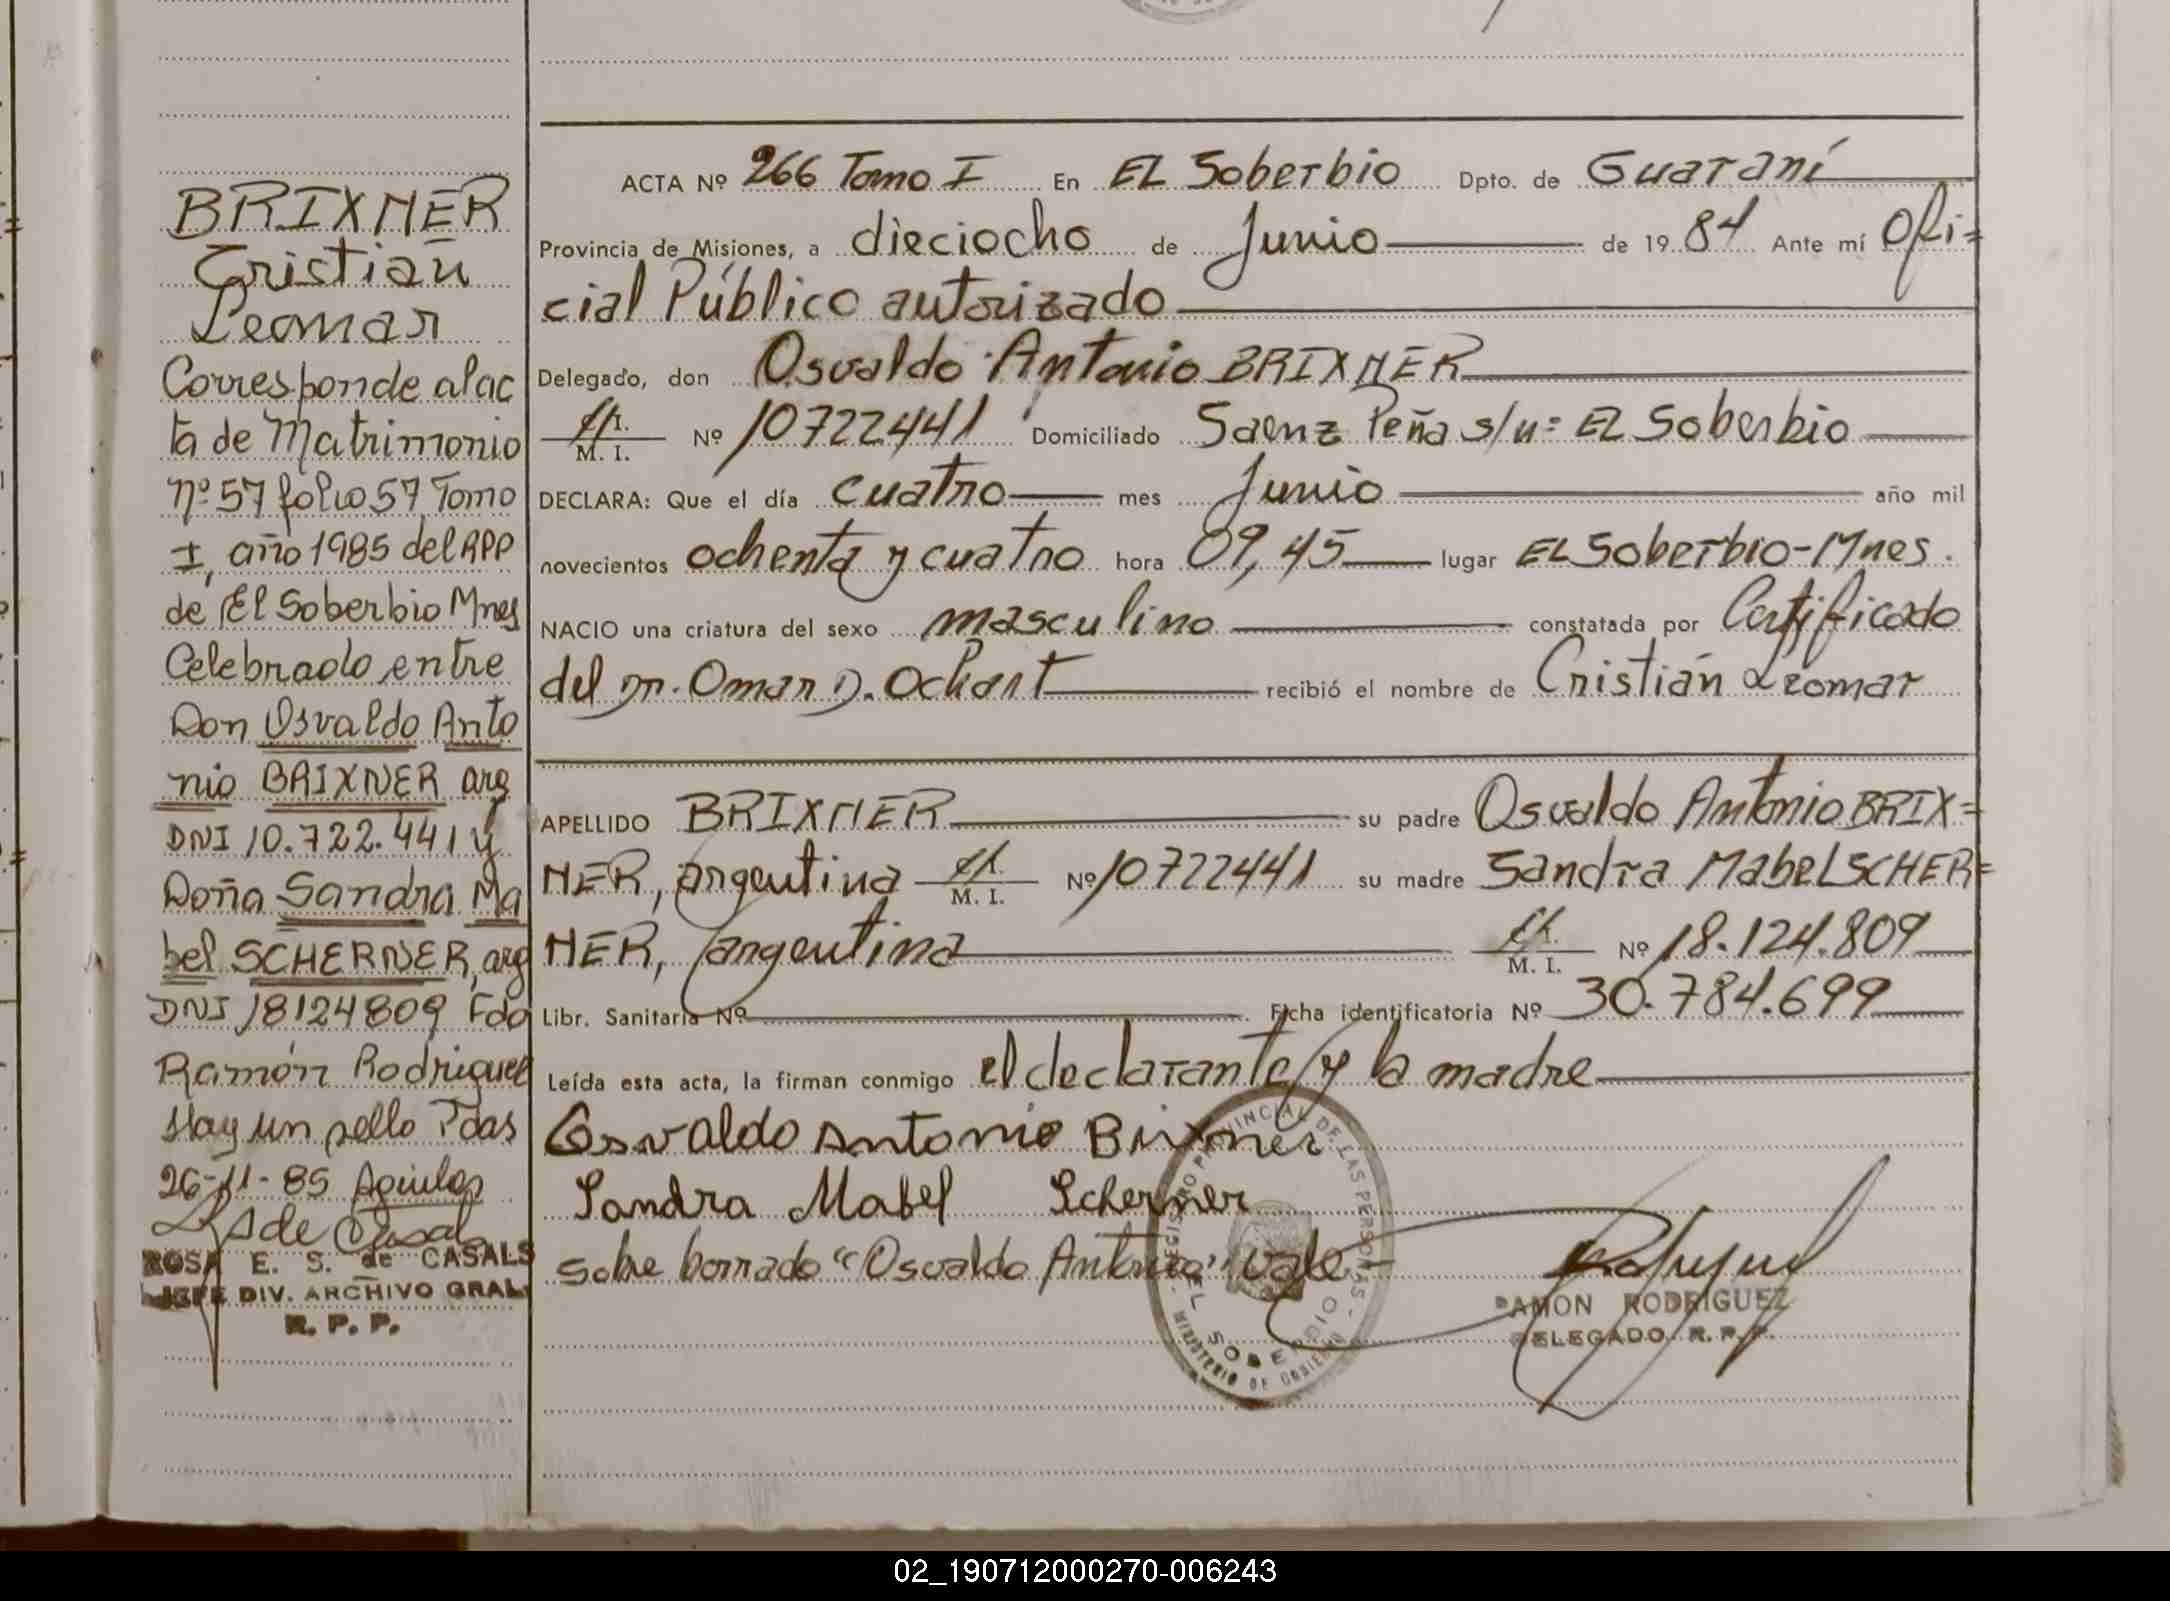 BRIXNER
Cristian
Leomar
Corresponde al ac
ta de Matrimonio
Nº 57 folio 57 Tomo
I, año 1985 del RPP
de El Soberbio Mnes
Celebrado entre
Don Osvaldo Anto
nio BRIXNER arg
DNI 10.722.441 y
Doña Sandra Ma
bel SCHERNER, arg
DNI 18124809 Fdo
Ramón Rodriguez
Hay un sello Pdas
26-11-85
ROSA E. S. de CASALS
JEFE DIV. ARCHIVO GRAL.
R. P. P.
ACTA Nº 266 Tomo I En EL Soberbio Dpto. de Guaraní
Provincia de Misiones, a dieciocho de Junio de 1984 Ante mí Ofi=
cial Público autorizado
Delegado, don Osvaldo Antonio BRIXNER
M. I. Nº 10722441 Domiciliado Saenz Peña s/n= EL Soberbio
DECLARA: Que el día cuatro mes Junio año mil
novecientos ochenta y cuatro hora 09,45 lugar EL Soberbio-Mnes.
NACIO una criatura del sexo masculino constatada por Certificado
del Dr. Omar D. Ochart recibió el nombre de Cristian Leomar
APELLIDO BRIXNER su padre Osvaldo Antonio BRIX=
NER, argentina M. I. Nº 10722441 su madre Sandra Mabel SCHER=
NER, argentina M. I. Nº 18.124.809
Libr. Sanitaria Nº Ficha identificatoria Nº 30.784.699
Leída esta acta, la firman conmigo el declarante y la madre
Osvaldo Antonio Brixner
Sandra Mabel Scherner
Sobre borrado "Osvaldo Antonio" vale-
REGISTRO PROVINCIAL DE LAS PERSONAS - MINISTERIO DE GOBIERNO -
EL SOBERBIO
RAMON RODRIGUEZ
DELEGADO R. P. P.
02_190712000270-006243